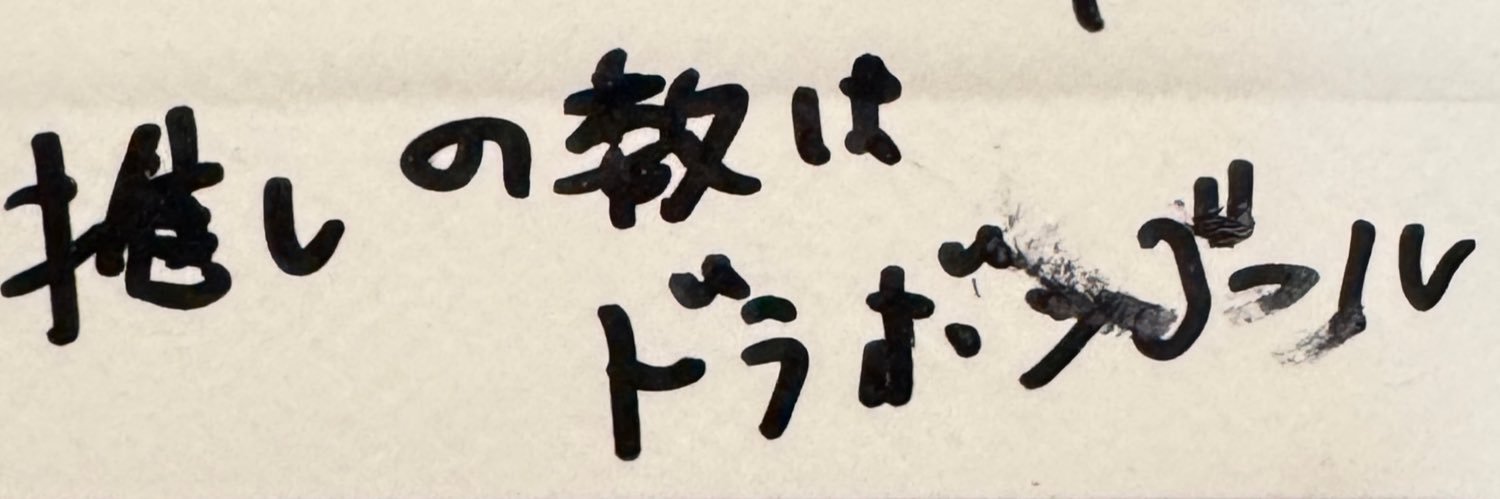 推しの数は
ドラボンゴール